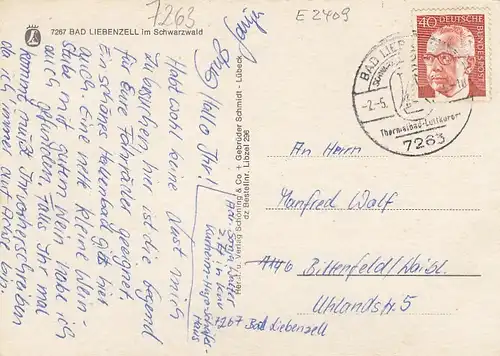 7263
E 2409
7267 BAD LIEBENZELL im Schwarzwald
Hallo Ihr!
Habt wohl keine Lust mich
zu besuchen, hier ist die Gegend
für Eure Fahrräder geeignet.
Ein schönes Hallenbad gibt hier
auch. Eine nette kleine Wein-
stube mit gutem Wein habe ich
auch gefunden. Falls Ihr mal
kommt müßt Ihr vorher schreiben
da ich immer auf Achse bin.
Gruß
z.Zt. in Kur
Haus
7267 Bad Liebenzell
Herst. u. Verlag Schöning & Co + Gebrüder Schmidt - Lübeck
Bestellnr. Libzel 296
40
DEUTSCHE
BUNDESPOST
BAD LIEBENZELL
-2.-5.
Thermalbad-Luftkurort
7263
An Herrn
Manfred Wolf
Bittenfeld/Waibl.
Uhlandstr. 5